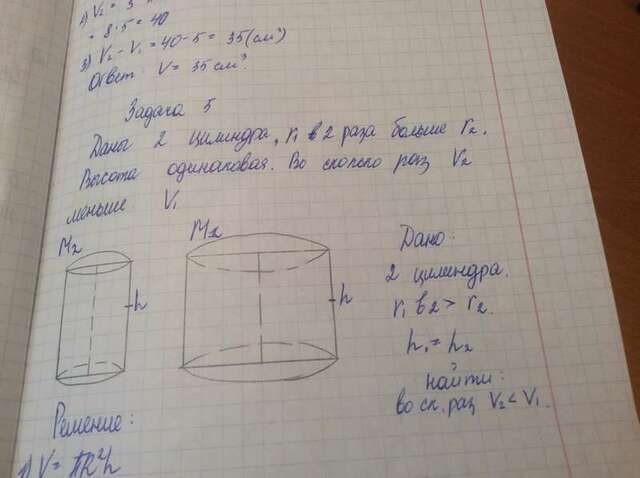 2) V₂ = 3
= 8·5 = 40
3) V₂ - V₁ = 40 - 5 = 35 (см³)
Ответ: V = 35 см³.
Задача 5
Даны 2 цилиндра, r₁ в 2 раза больше r₂.
Высота одинаковая. Во сколько раз V₂
меньше V₁
M₂
h
M₂
h
Дано:
2 цилиндра.
r₁ в 2 > r₂.
h₁ = h₂
найти:
во ск. раз V₂ < V₁.
Решение:
1) V = πR²h